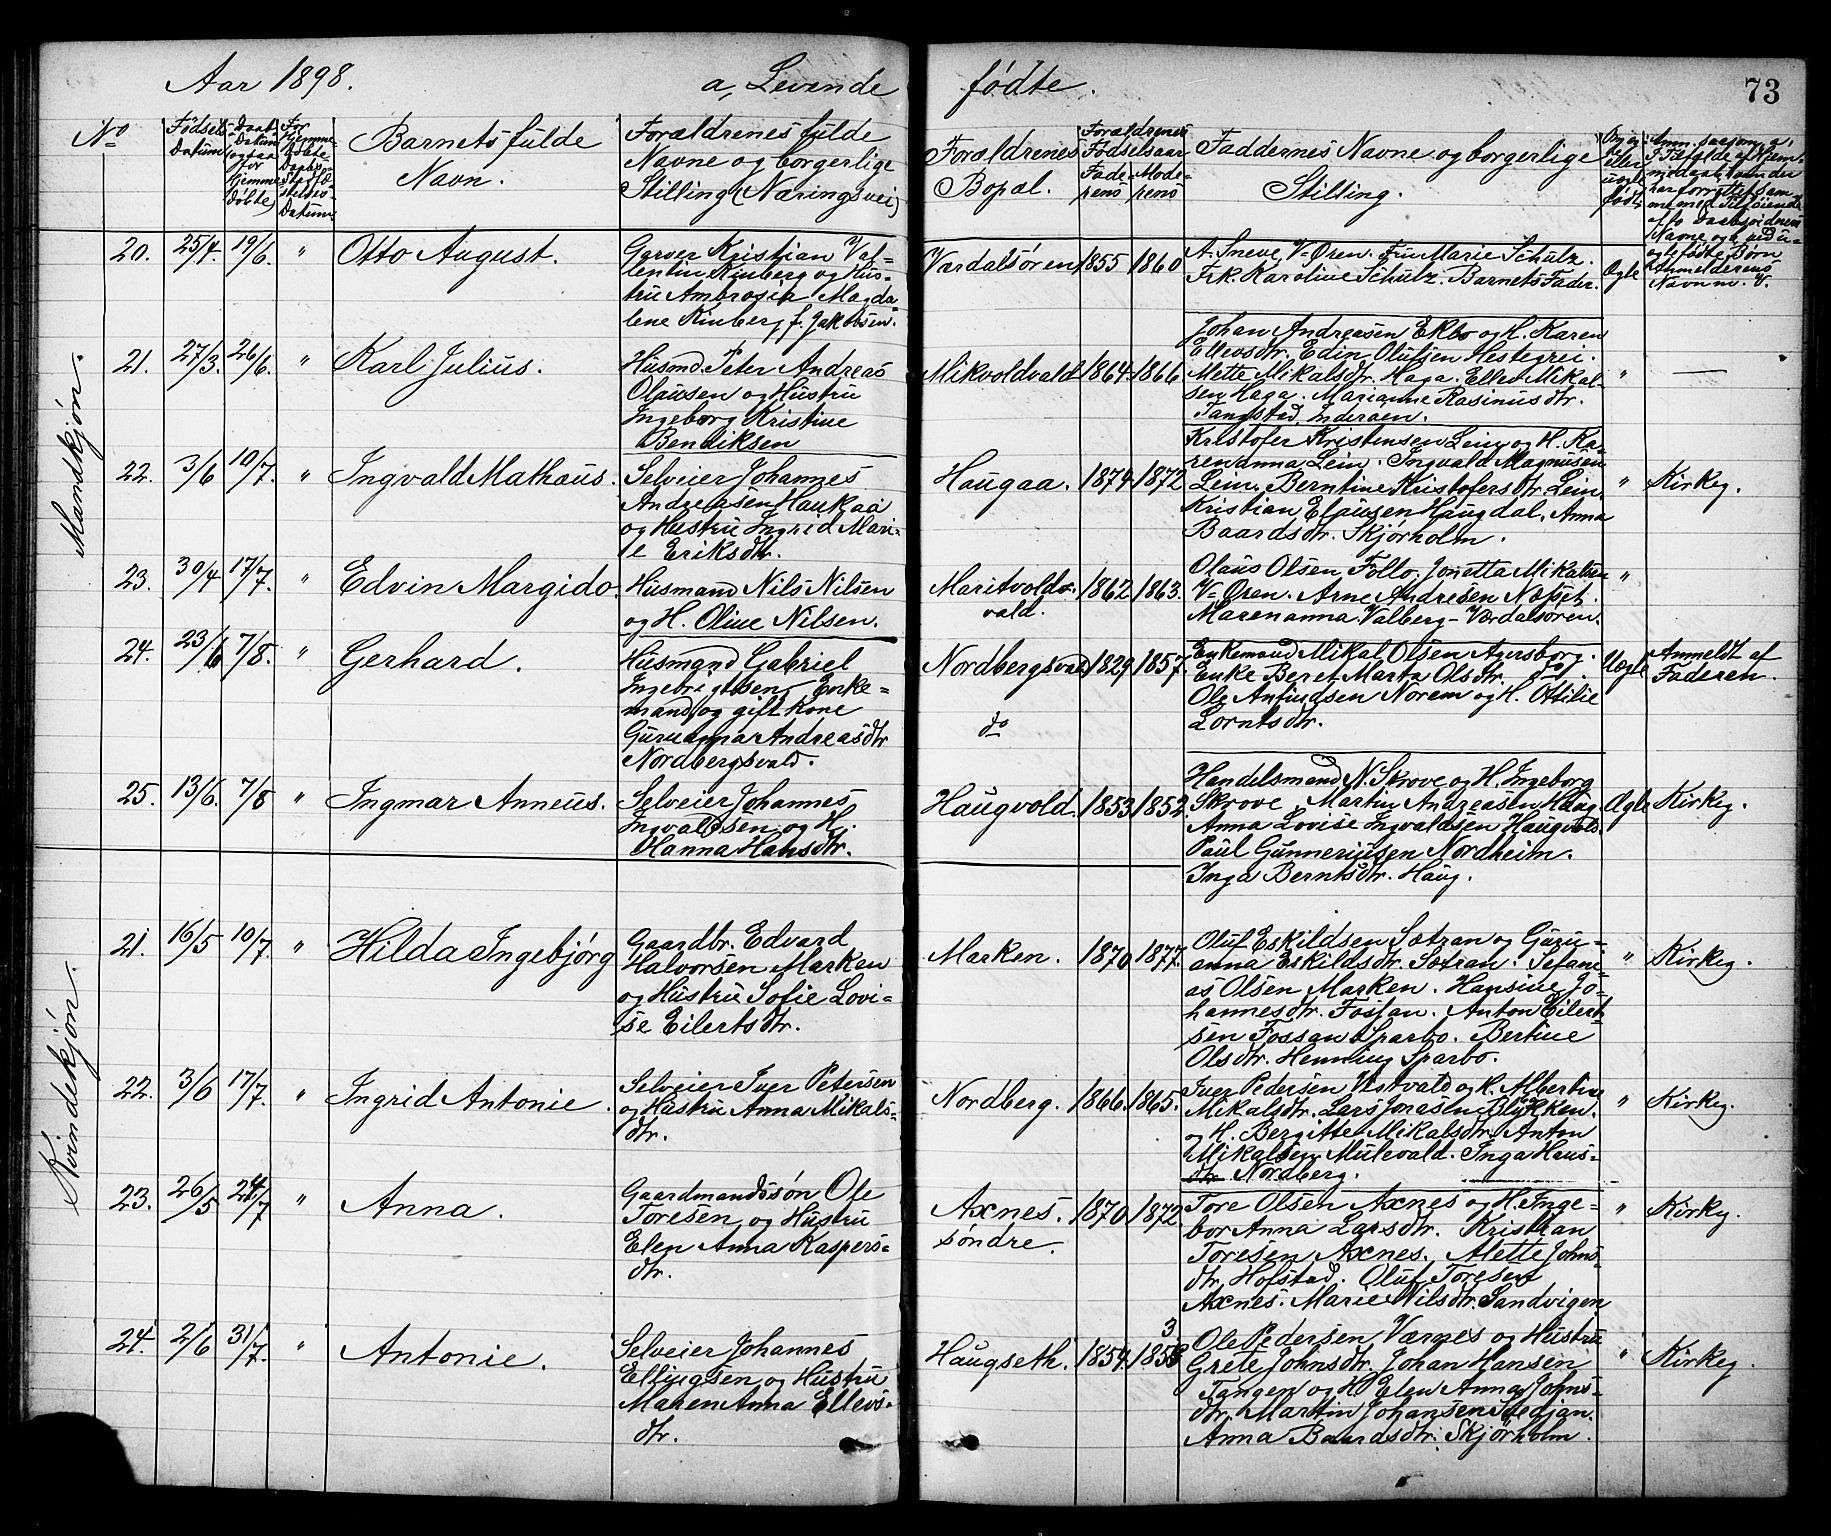 Aar 1898. a, Levende fødte. 73
No
Fødsels-
Datum
Daab-
Datum
(ogsaa
for
hjemme
døbte)
For
hjemme-
døbte
Daabs-
Stadfæ-
stelses-
Datum
Barnets fulde
Navn.
Forældrenes fulde
Navne og borgerlige
Stilling (Næringsvei)
Forældrenes
Bopæl.
Forældrenes
Fødselsaar
Fade-
rens
Mode-
rens
Faddernes Navne og borgerlige
Stilling.
Om æg-
te
eller
uægte
født.
Navn m. v.
Mandkjøn.
20. 25/4. 19/6. " Otto August.
Garver Kristian Va-
lentin Kinberg og Hus-
tru Ambrosia Magda-
lene Kinberg f. Jakobsen.
Værdalsøren 1855 1860
A. Sneve, V-Øren. Fru Marie Schulz.
Frk. Karoline Schulz. Barnets Fader.
Ægte
21. 27/3. 26/6. " Karl Julius.
Husmd. Peter Andreas
Olausen og Hustru
Ingeborg Kristine
Bendiksen
Mikvoldvald 1864 1866
Johan Andreasen Ekbo og H. Karen
Ellevsdtr. Edin Olufsen Hestegrei.
Mette Mikalsdtr. Haga. Ellev Mikal-
sen Haga. Marianne Rasinusdtr.
Tangstad, Inderøen.
" —
22. 3/6 10/7. " Ingvald Mathæus.
Selveier Johannes
Andreasen Haukaa
og Hustru Ingrid Mari-
e Eriksdtr.
Haugaa. 1874 1872
Kristofer Kristensen Lein og H. Ka-
renanna Lein. Ingvald Magnusen
Lein. Berntine Kristofersdtr. Lein.
Kristian Elausen Haugdal. Anna
Baardsdtr. Skjørholm.
" Kirkeg.
23. 30/4 17/7. " Edvin Margido.
Husmand Nils Nilsen
og H. Oline Nilsen.
Maritvolds-
vald.
1862 1863.
Olaus Olsen Follo. Jonetta Mikalsen
V-Øren. Arne Andresen Næsset.
Marenanna Valberg - Værdalsøren.
"
24. 23/6 7/8. " Gerhard.
Husmand Gabriel
Ingebrigtsen, Enke-
mand, og gift Kone
Guruanna Andreasdtr
Nordbergsvald.
Nordbergsvald
do
1829 1857.
Enkemand Mikal Olsen Agersborg.
Enke Beret Marta Olsdtr. do.
Ole Anfindsen Norem og H. Ottilie
Lorntsdtr.
Uægte Anmeldt af
Faderen.
25. 13/6. 7/8 " Ingmar Anneus.
Selveier Johannes
Ingvaldsen og H.
Hanna Hansdtr.
Haugvold. 1853 1852.
Handelsmand N. Skrove og H. Ingeborg
Skrove. Martin Andreasen Haug.
Anna Lovise Ingvaldsen Haugvold.
Paul Gunneriusen Nordheim.
Inga Berntsdtr. Haug.
Ægte Kirkeg.
Kvindekjøn.
21. 16/5 10/7. " Hilda Ingebjørg
Gaardbr. Edvard
Halvorsen Marken
og Hustru Sofie Lovi-
se Eilertsdtr.
Marken. 1870 1877.
Oluf Eskildsen Sætran og Guru-
anna Eskildsdtr. Sætran. Sefani-
as Olsen Marken. Hansine Jo-
hannesdtr. Fossan. Anton Eilert-
sen Fossan Sparbo. Bertine
Olsdtr. Henning Sparbo.
" Kirkeg.
22. 3/6 17/7. " Ingrid Antonie.
Selveier Iver Petersen
og Hustru Anna Mikals-
dtr.
Nordberg. 1866. 1865.
Iver Pedersen Vestvald og H. Albertine
Mikalsdtr. Lars Jonasen Blykken.
og H. Bergitte Mikalsdtr. Anton
Mikalsen Mulevald. Inga Hans-
dtr. Nordberg.
" Kirkeg.
23. 26/5 24/7 " Anna.
Gaardmandssøn Ole
Toresen og Hustru
Elen Anna Kaspers-
dtr.
Axnes.
søndre.
1870 1872
Tore Olsen Axnes og H. Inge-
bor Anna Larsdtr. Kristian
Toresen Axnes. Alette Johns-
dtr. Hofstad. Oluf Toresen
Axnes. Marie Nilsdtr. Sandvigen
" Kirkeg.
24. 2/6 31/7. " Antonie.
Selveier Johannes
Ellingsen og Hustru
Maren Anna Ellevs-
dtr.
Haugseth. 1859. 1853
Ole Pedersen Værnes og Hustru
Grete Johnsdtr. Johan Hansen
Tangen og H. Elen Anna Johns-
dtr. Martin Johansen Stedjan.
Anna Baardsdtr. Skjørholm.
" Kirkeg.